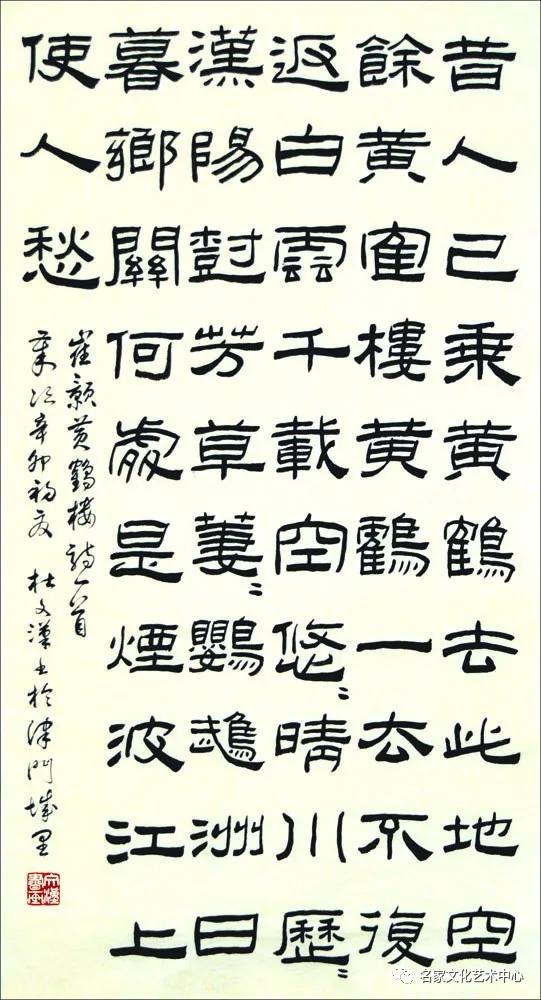 昔人已乘黄鶴去此地空
餘黄寉樓黄鸖一去不復
返白雲千載空悠〻晴川歷〻
漢陽尌芳草萋〻鸚鵡洲日
暮鄉關何處是煙波江上
使人愁
崔顥黄鶴楼詩一首
歲次辛卯初夏 杜文漢书於津門城里
名家文化艺术中心